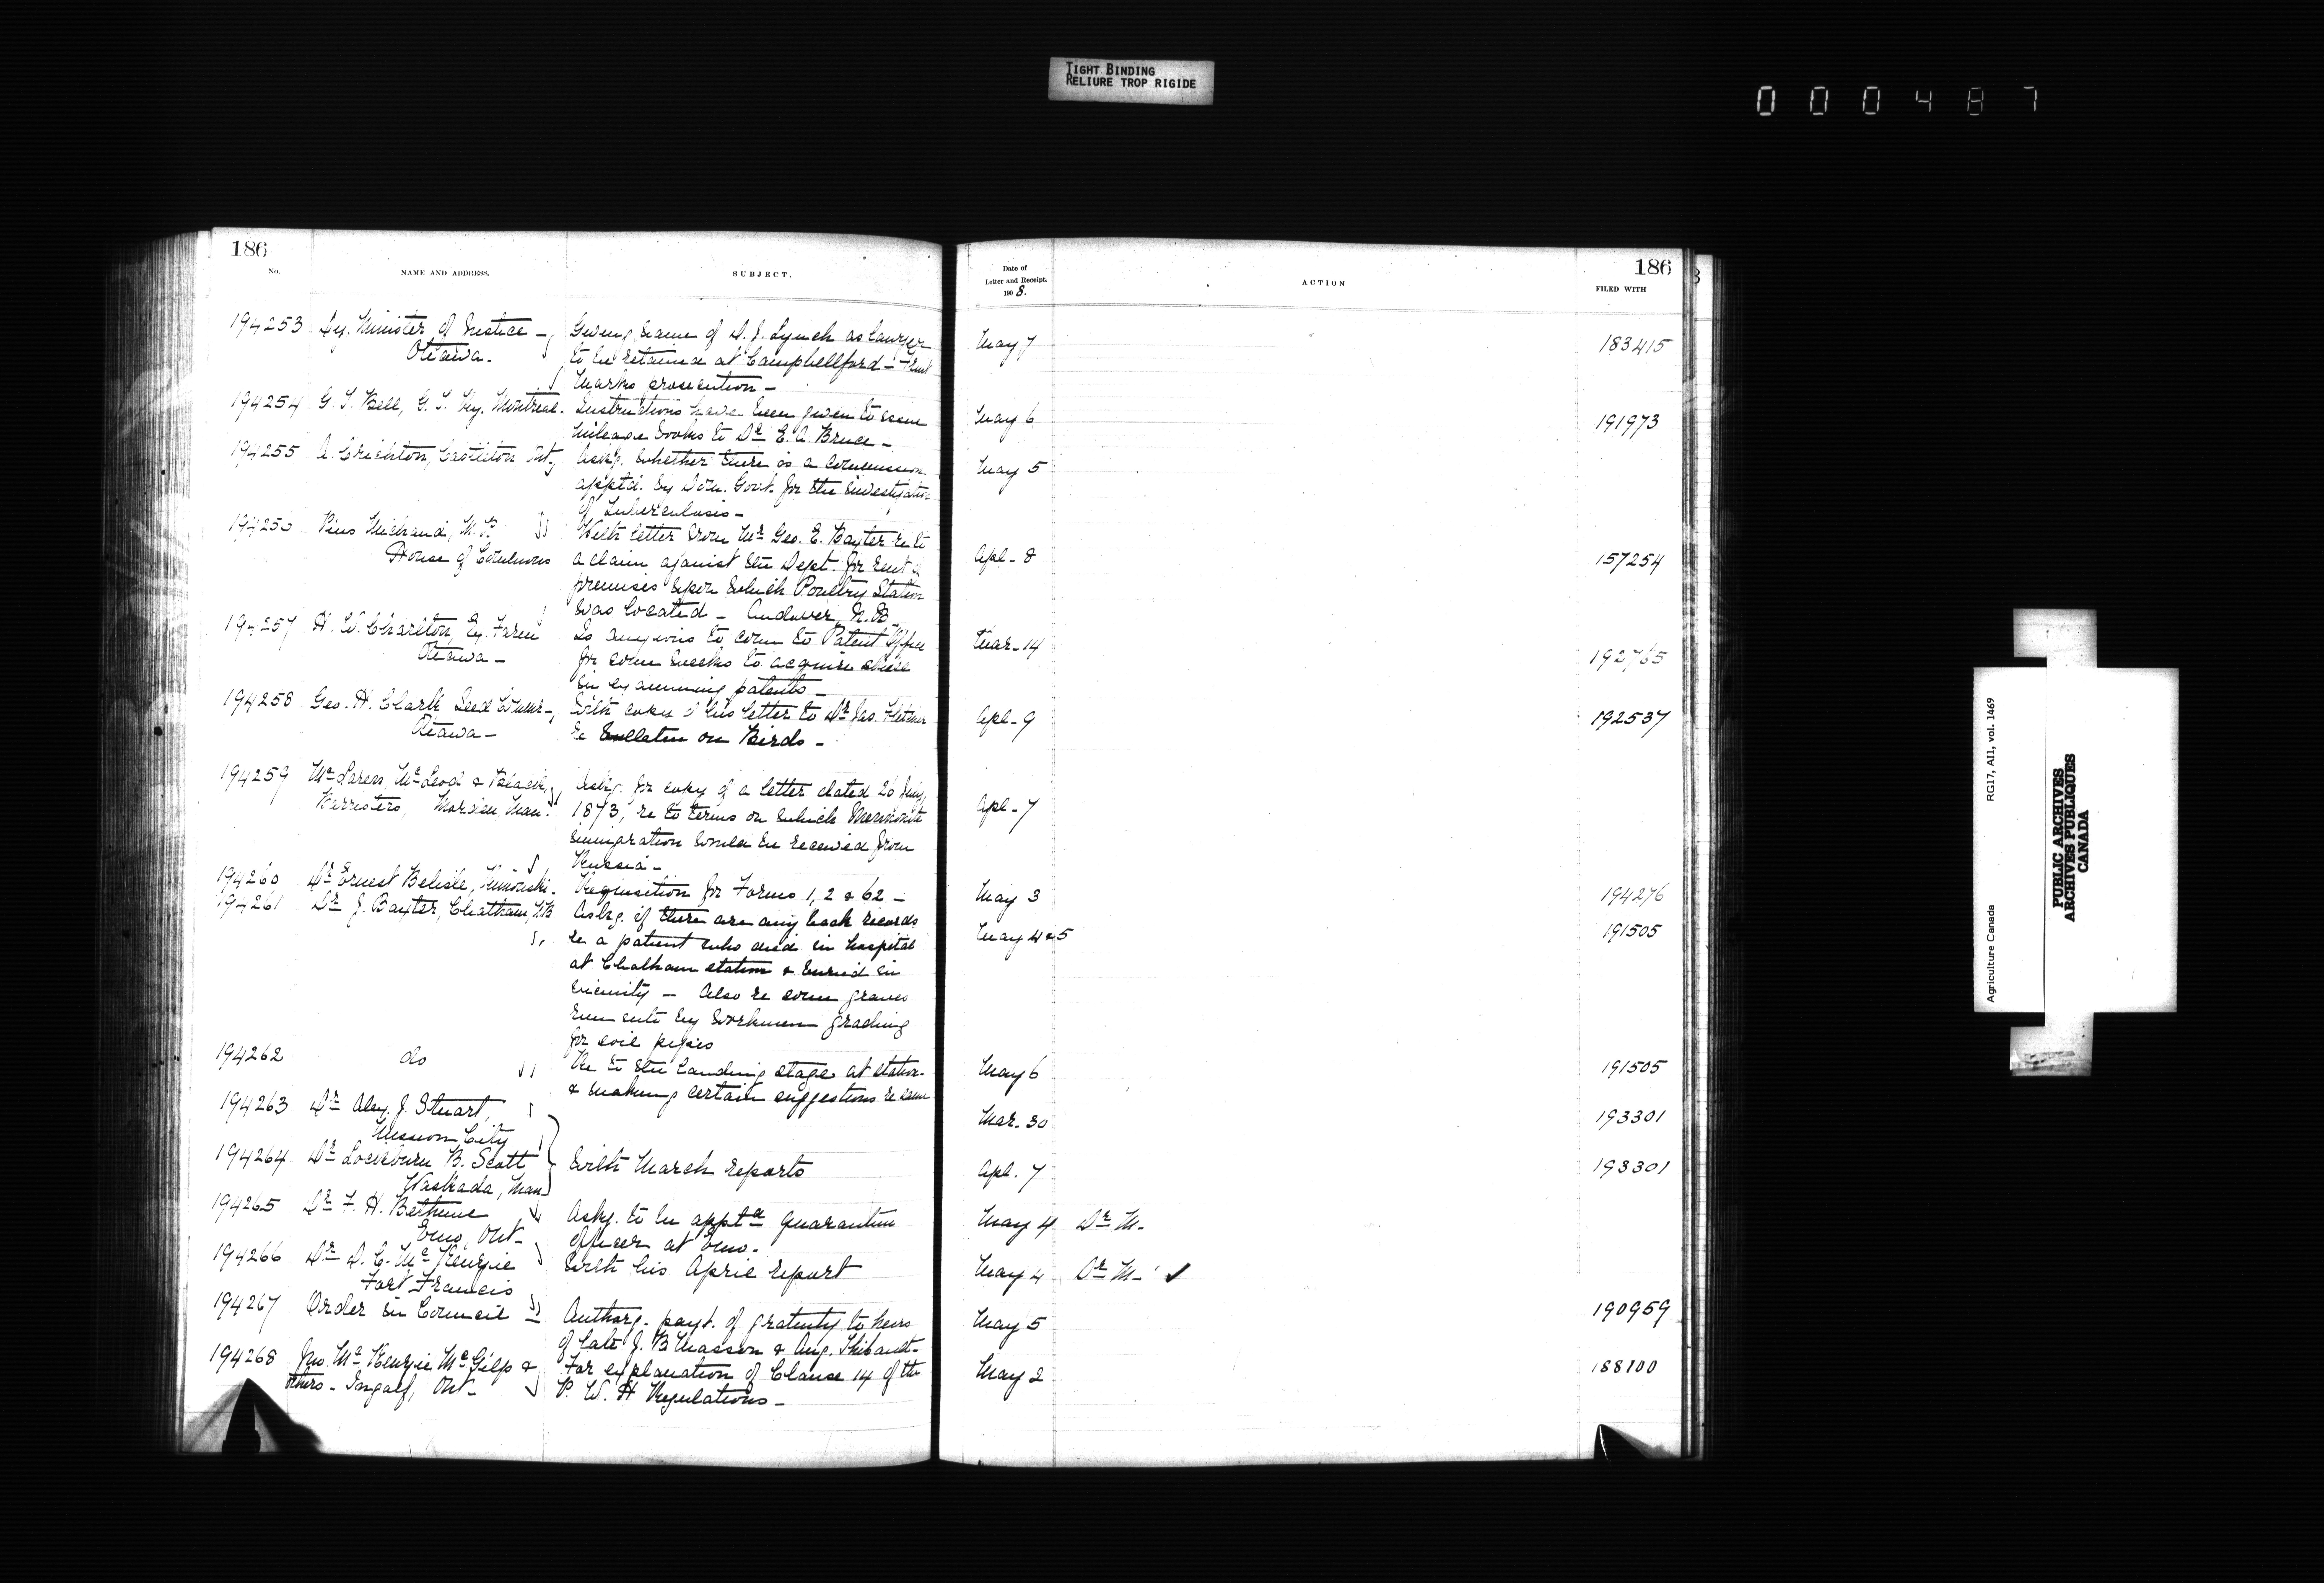 TIGHT BINDING
RELIURE TROP RIGIDE
000487
186
No.
NAME AND ADDRESS.
SUBJECT.
194253 Dy. Minister of Justice - Ottawa.
Giving name of D. J. Lynch as lawyer
to be retained at Campbellford - Fruit
Marks prosecution -
194254 G. T. Bell, G. T. Ry. Montreal.
Instructions have been given to issue
mileage books to Dr E. A. Bruce -
194255 A. Crichton, Castleton Ont.
Askg. whether there is a commission
apptd. by Dom. Govt. for the investigation
of Tuberculosis -
194256 Pius Michaud, M.P.
House of Commons
With letter from Mr Geo. E. Baxter re to
a claim against the Dept. for rent of
premises upon which Poultry Station
was located - Andover, N.B.
194257 H. W. Charlton, Ex. Farm
Ottawa -
Is anxious to come to Patent Office
for some weeks to acquire skill
in examining patents -
194258 Geo. H. Clark Seed Commr -
Ottawa -
With copy of his letter to Dr Jas. Fletcher
re Bulletin on Birds -
194259 McLaren, McLeod & Black,
Barristers, Morden, Man.
Askg. for copy of a letter dated 26 July,
1873, re to terms on which Mennonite
immigration would be received from
Russia -
194260 Dr Ernest Belisle, Rimouski.
Requisition for Forms 1, 2 & 62 -
194261 Dr J. Baxter, Chatham, N.B.
Askg. if there are any back records
re a patient who died in hospital
at Chatham station & buried in
vicinity - Also re some graves
run into by workmen grading
for soil pipes
194262 do
Re to the landing stage at station
& making certain suggestions re same
194263 Dr Alex. J. Stuart,
Mission City
194264 Dr Lockburn B. Scott
Waskada, Man.
With March reports
194265 Dr F. H. Bethune
Emo, Ont -
Askg. to be apptd Quarantine
Officer at Emo.
194266 Dr D. C. McKenzie
Fort Francis
With his April report
194267 Order in Council
Authorg. payt. of gratuity to heirs
of late J. B Masson & Aug. Thibault -
194268 Jno. McKenzie McGilp &
others - Ingolf, Ont -
For explanation of Clause 14 of the
P. W. H Regulations -
186
Date of
Letter and Receipt.
1908.
ACTION
FILED WITH
May 7 183415
May 6 191973
May 5
Apl - 8 157254
Mar. 14 192765
Apl - 9 192537
Apl - 7
May 3 194276
May 4 & 5 191505
May 6 191505
Mar. 30 193301
Apl. 7 193301
May 4 Dr M -
May 4 Dr M - ✓
May 5 190959
May 2 188100
Agriculture Canada RG17, AII, vol. 1469
PUBLIC ARCHIVES
ARCHIVES PUBLIQUES
CANADA